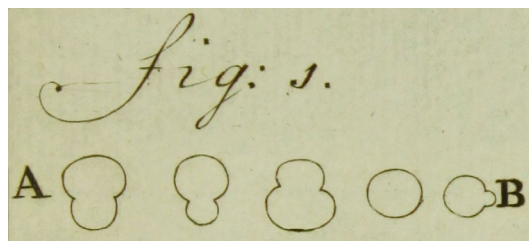 fig: 1.
A B